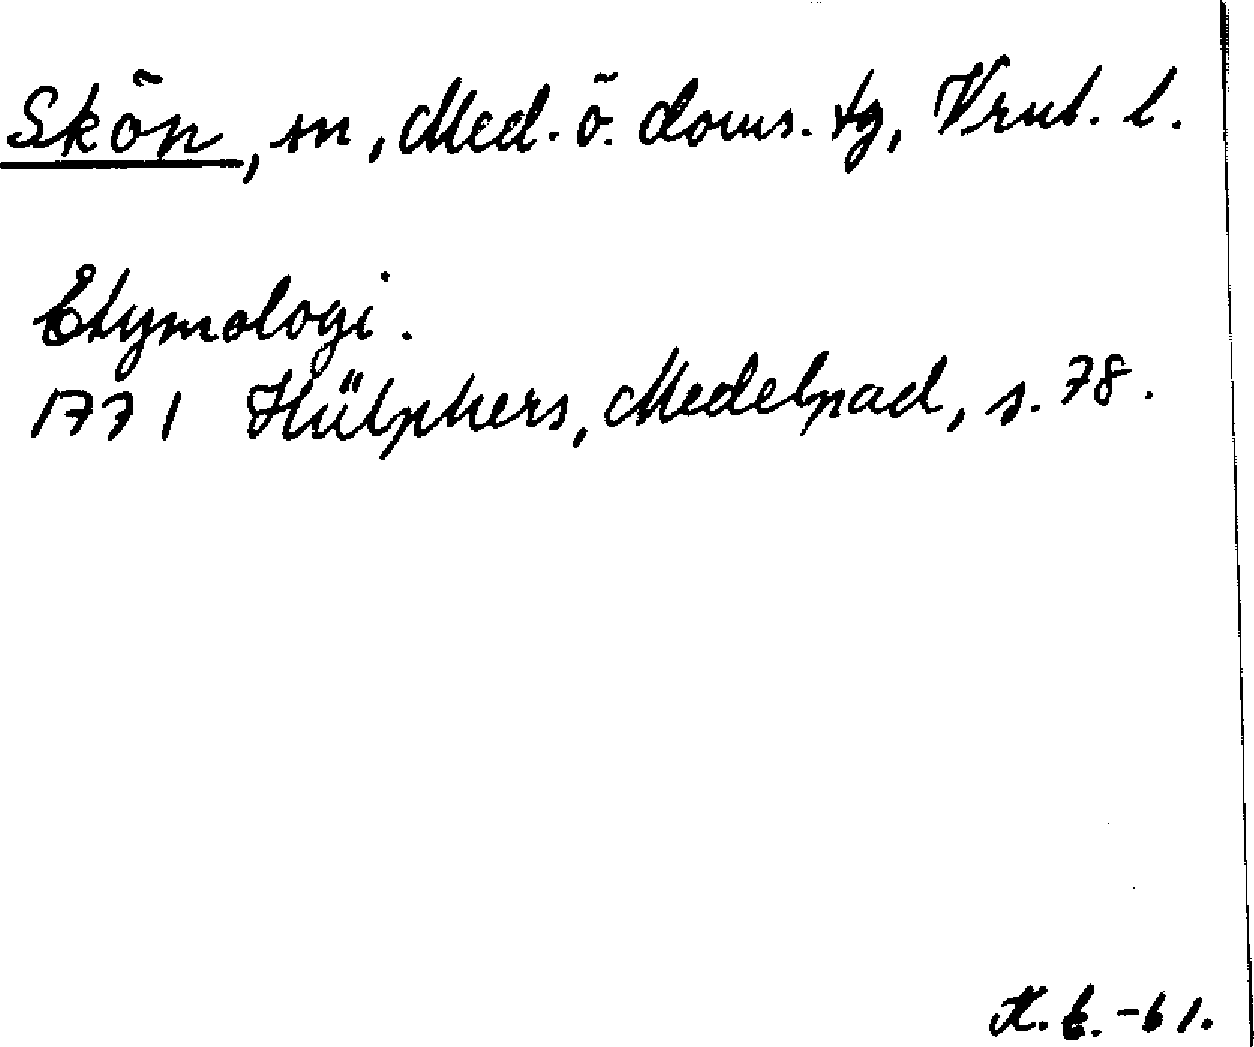 Skön, sn, Med. ö. doms. tg, Vrnl. l.
Etymologi.
1771 Hülphers, Medelpad, s. 78.
K.E.-61.